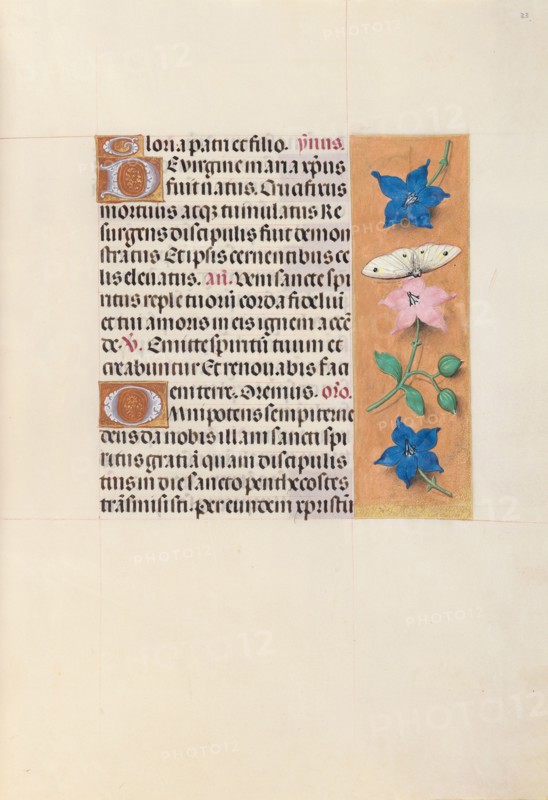 Gloria patri et filio. ymus.
De virgine maria xpus
fuit natus. Crucifixus
mortuus atqz tumulatus Re
surgens discipulis fuit demon
stratus Et ipsis cernentibus ce
lis eleuatus. añ. Veni sancte spi
ritus reple tuorū corda fideliū
et tui amoris in eis ignem accē
de. V. Emitte spiritū tuum et
creabuntur Et renouabis faci
em terre. Oremus. oro.
Omnipotens sempiterne
deus da nobis illam sancti spi
ritus gratiā quam discipulis
tuis in die sancto penthecostes
trāsmisisti. Per eundem xpristū